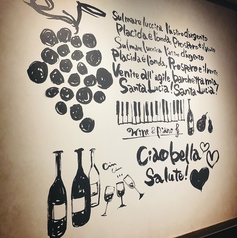 Sul mare luccica l'astro d'argento
Placida è l'onda, Prospero è il vento
Sul mare luccica l'astro d'argento
Placida è l'onda, Prospero è il vento
Venite all'agile barchetta mia
Santa Lucia! Santa Lucia!
wine & piano
Ciao bella
Salute!